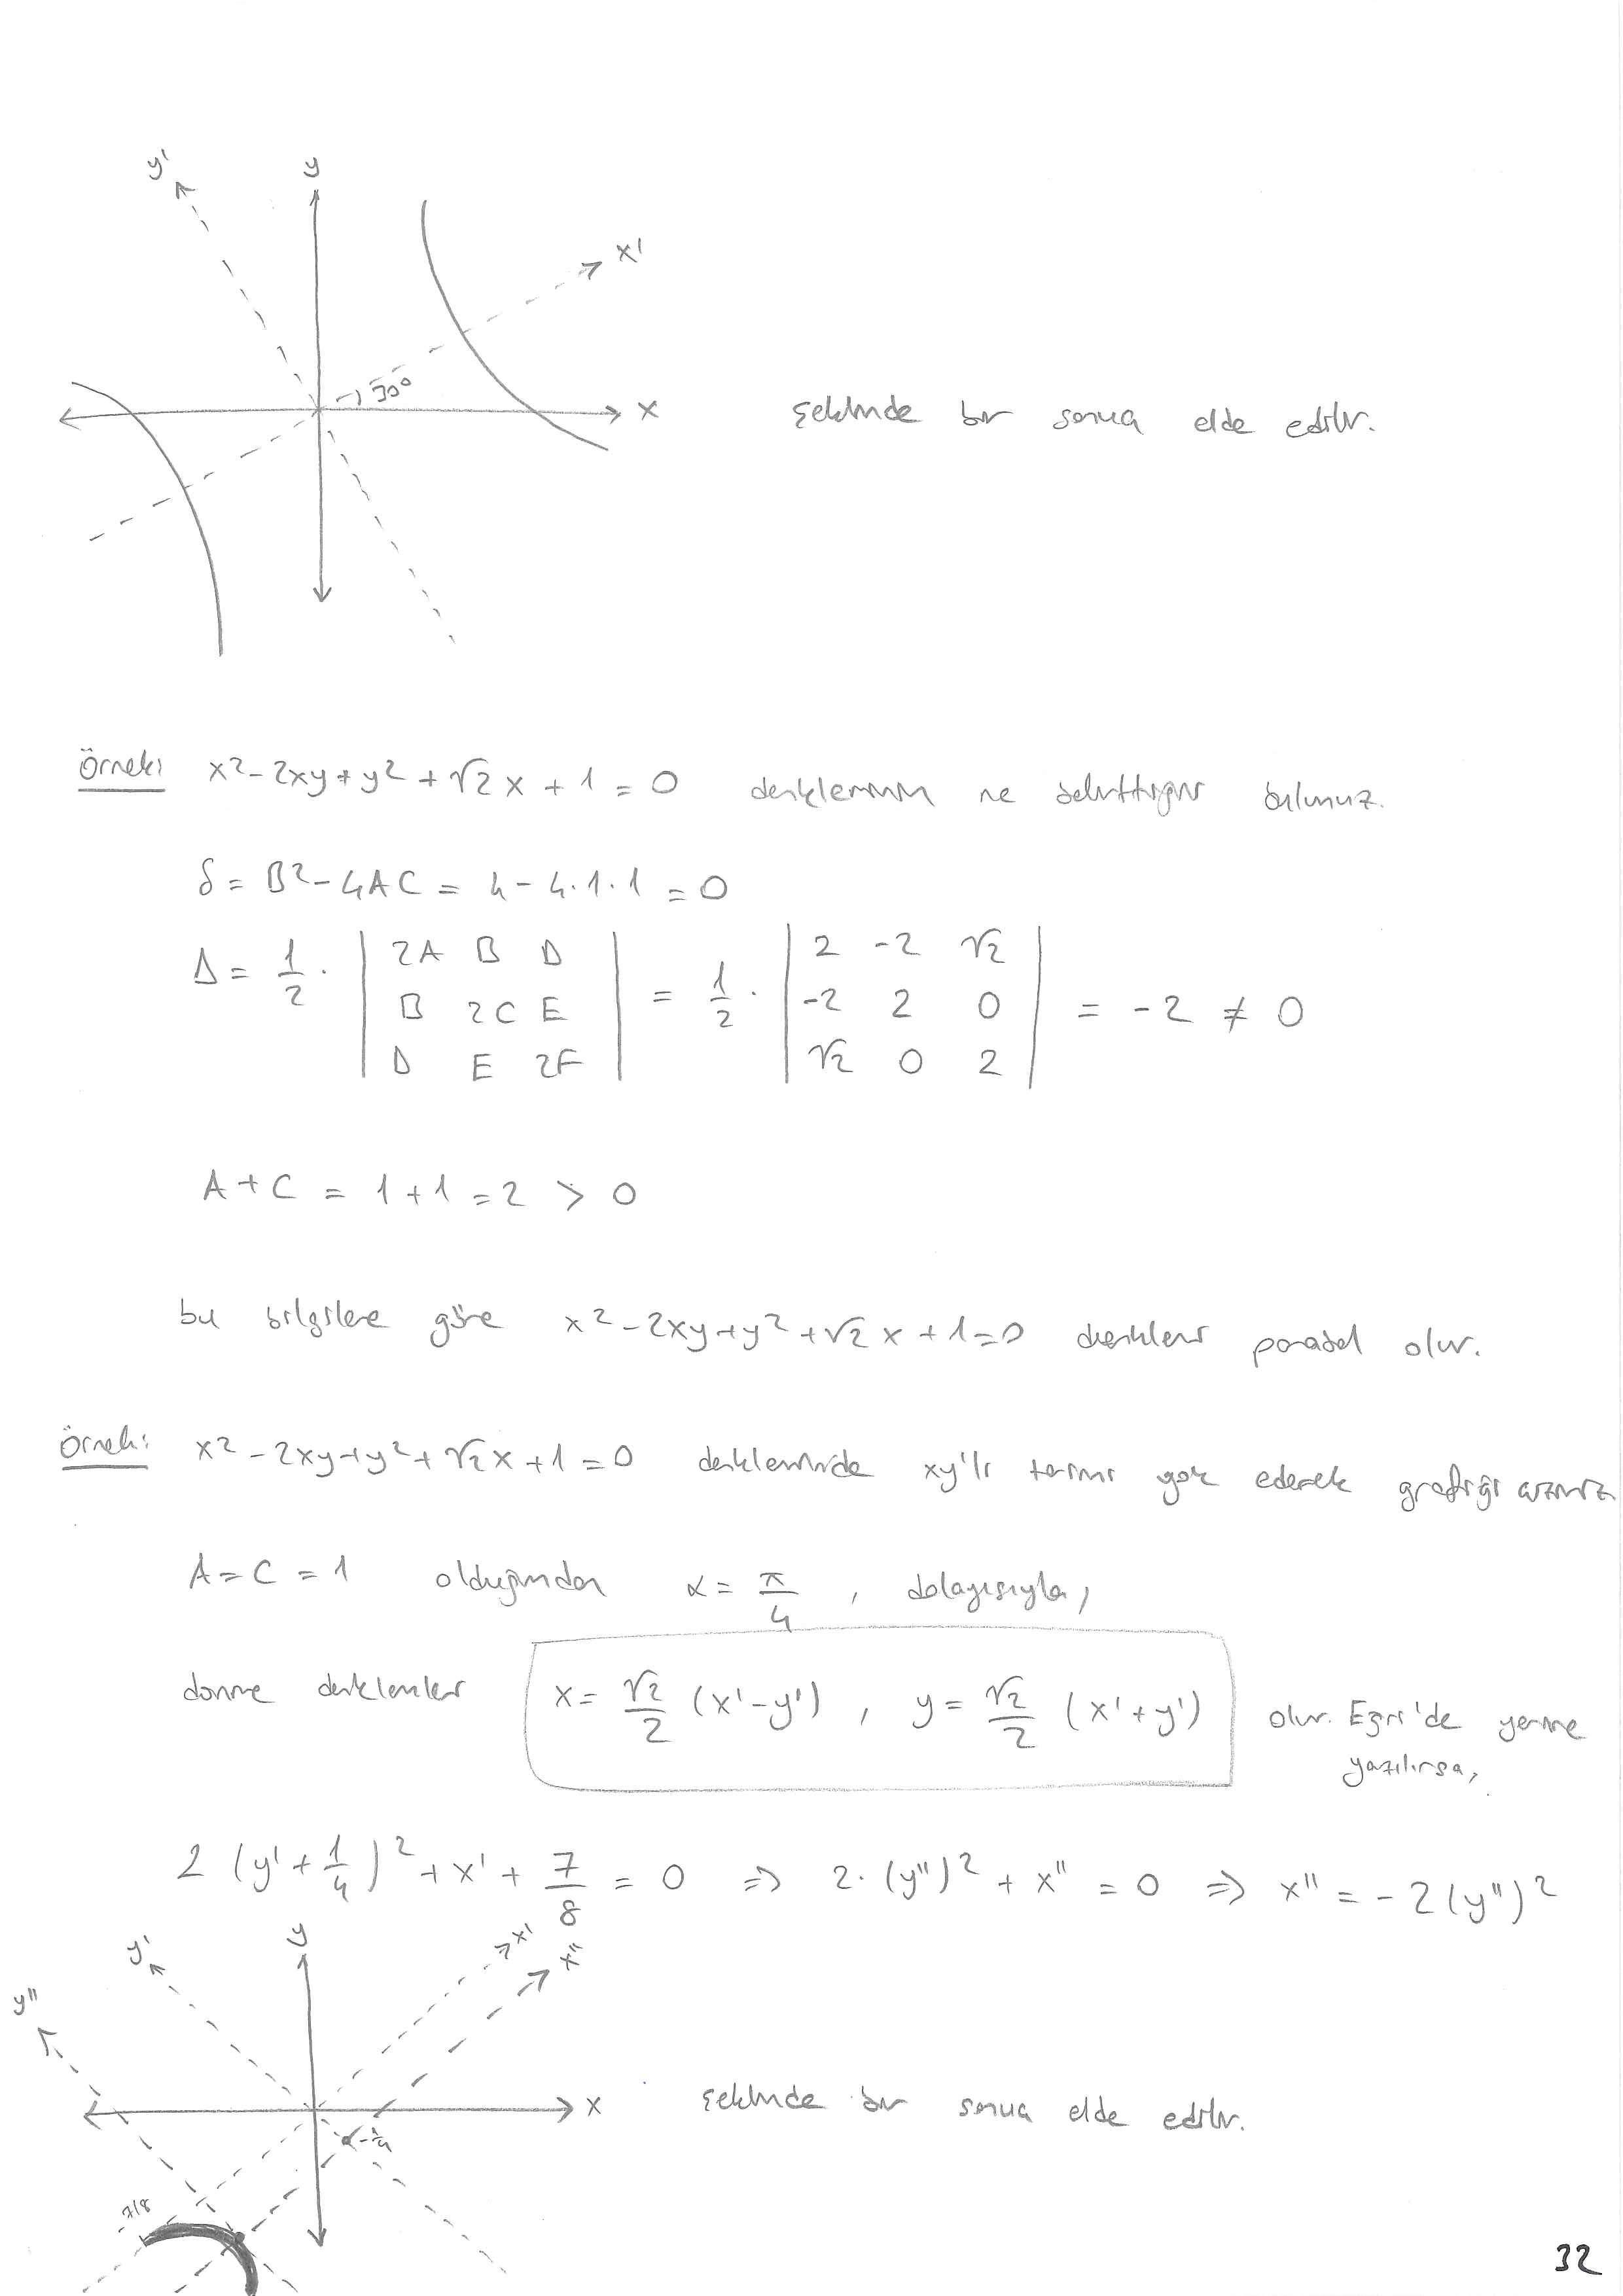 y' y
x'
30°
x
şeklinde bir sonuç elde edilir.
Örnek: x² - 2xy + y² + √2 x + 1 = 0 denkleminin ne belirttiğini bulunuz.
δ = B² - 4AC = 4 - 4.1.1 = 0
Δ = 1/2 . | 2A B D | = 1/2 . | 2 -2 √2 | = -2 ≠ 0
| B 2C E | | -2 2 0 |
| D E 2F | | √2 0 2 |
A + C = 1 + 1 = 2 > 0
bu bilgilere göre x² - 2xy + y² + √2 x + 1 = 0 denklemi parabol olur.
Örnek: x² - 2xy + y² + √2 x + 1 = 0 denkleminde xy'li terimi yok ederek grafiği çiziniz
A = C = 1 olduğundan α = π/4 , dolayısıyla,
dönme denklemleri x = √2/2 (x' - y') , y = √2/2 (x' + y') olur. Eğri'de yerine
yazılırsa,
2 (y' + 1/4)² + x' + 7/8 = 0 ⇒ 2. (y'')² + x'' = 0 ⇒ x'' = -2 (y'')²
y' y x'
x''
y''
x
şeklinde bir sonuç elde edilir.
-1/4
-7/8
32